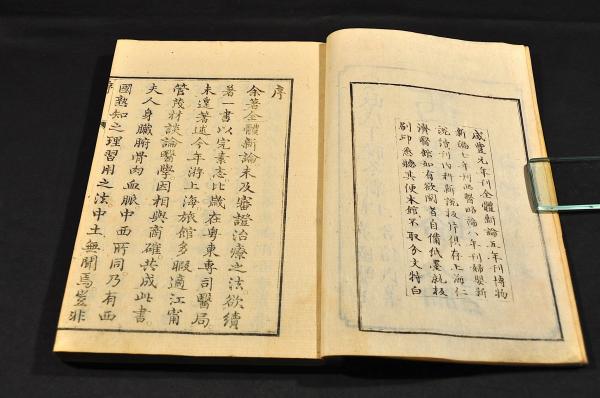 咸豐元年刊全體新論五年刊博物
新編七年刊西醫畧論八年刊婦嬰新
說續刊內科新說板片俱存上海仁
濟醫館如有欲閱者自備紙墨就板
刷印悉聽其便本館不取分文特白
序
余著全體新論未及審證治療之法欲續
著一書以完素志比歲在粵東專司醫局
未遑著述今年游上海旅館多暇適江甯
管茂材談論醫學因相與商確共成此書
夫人身臟腑骨肉血脈中西所同乃有西
國熟知之理習用之法中土無聞焉豈非